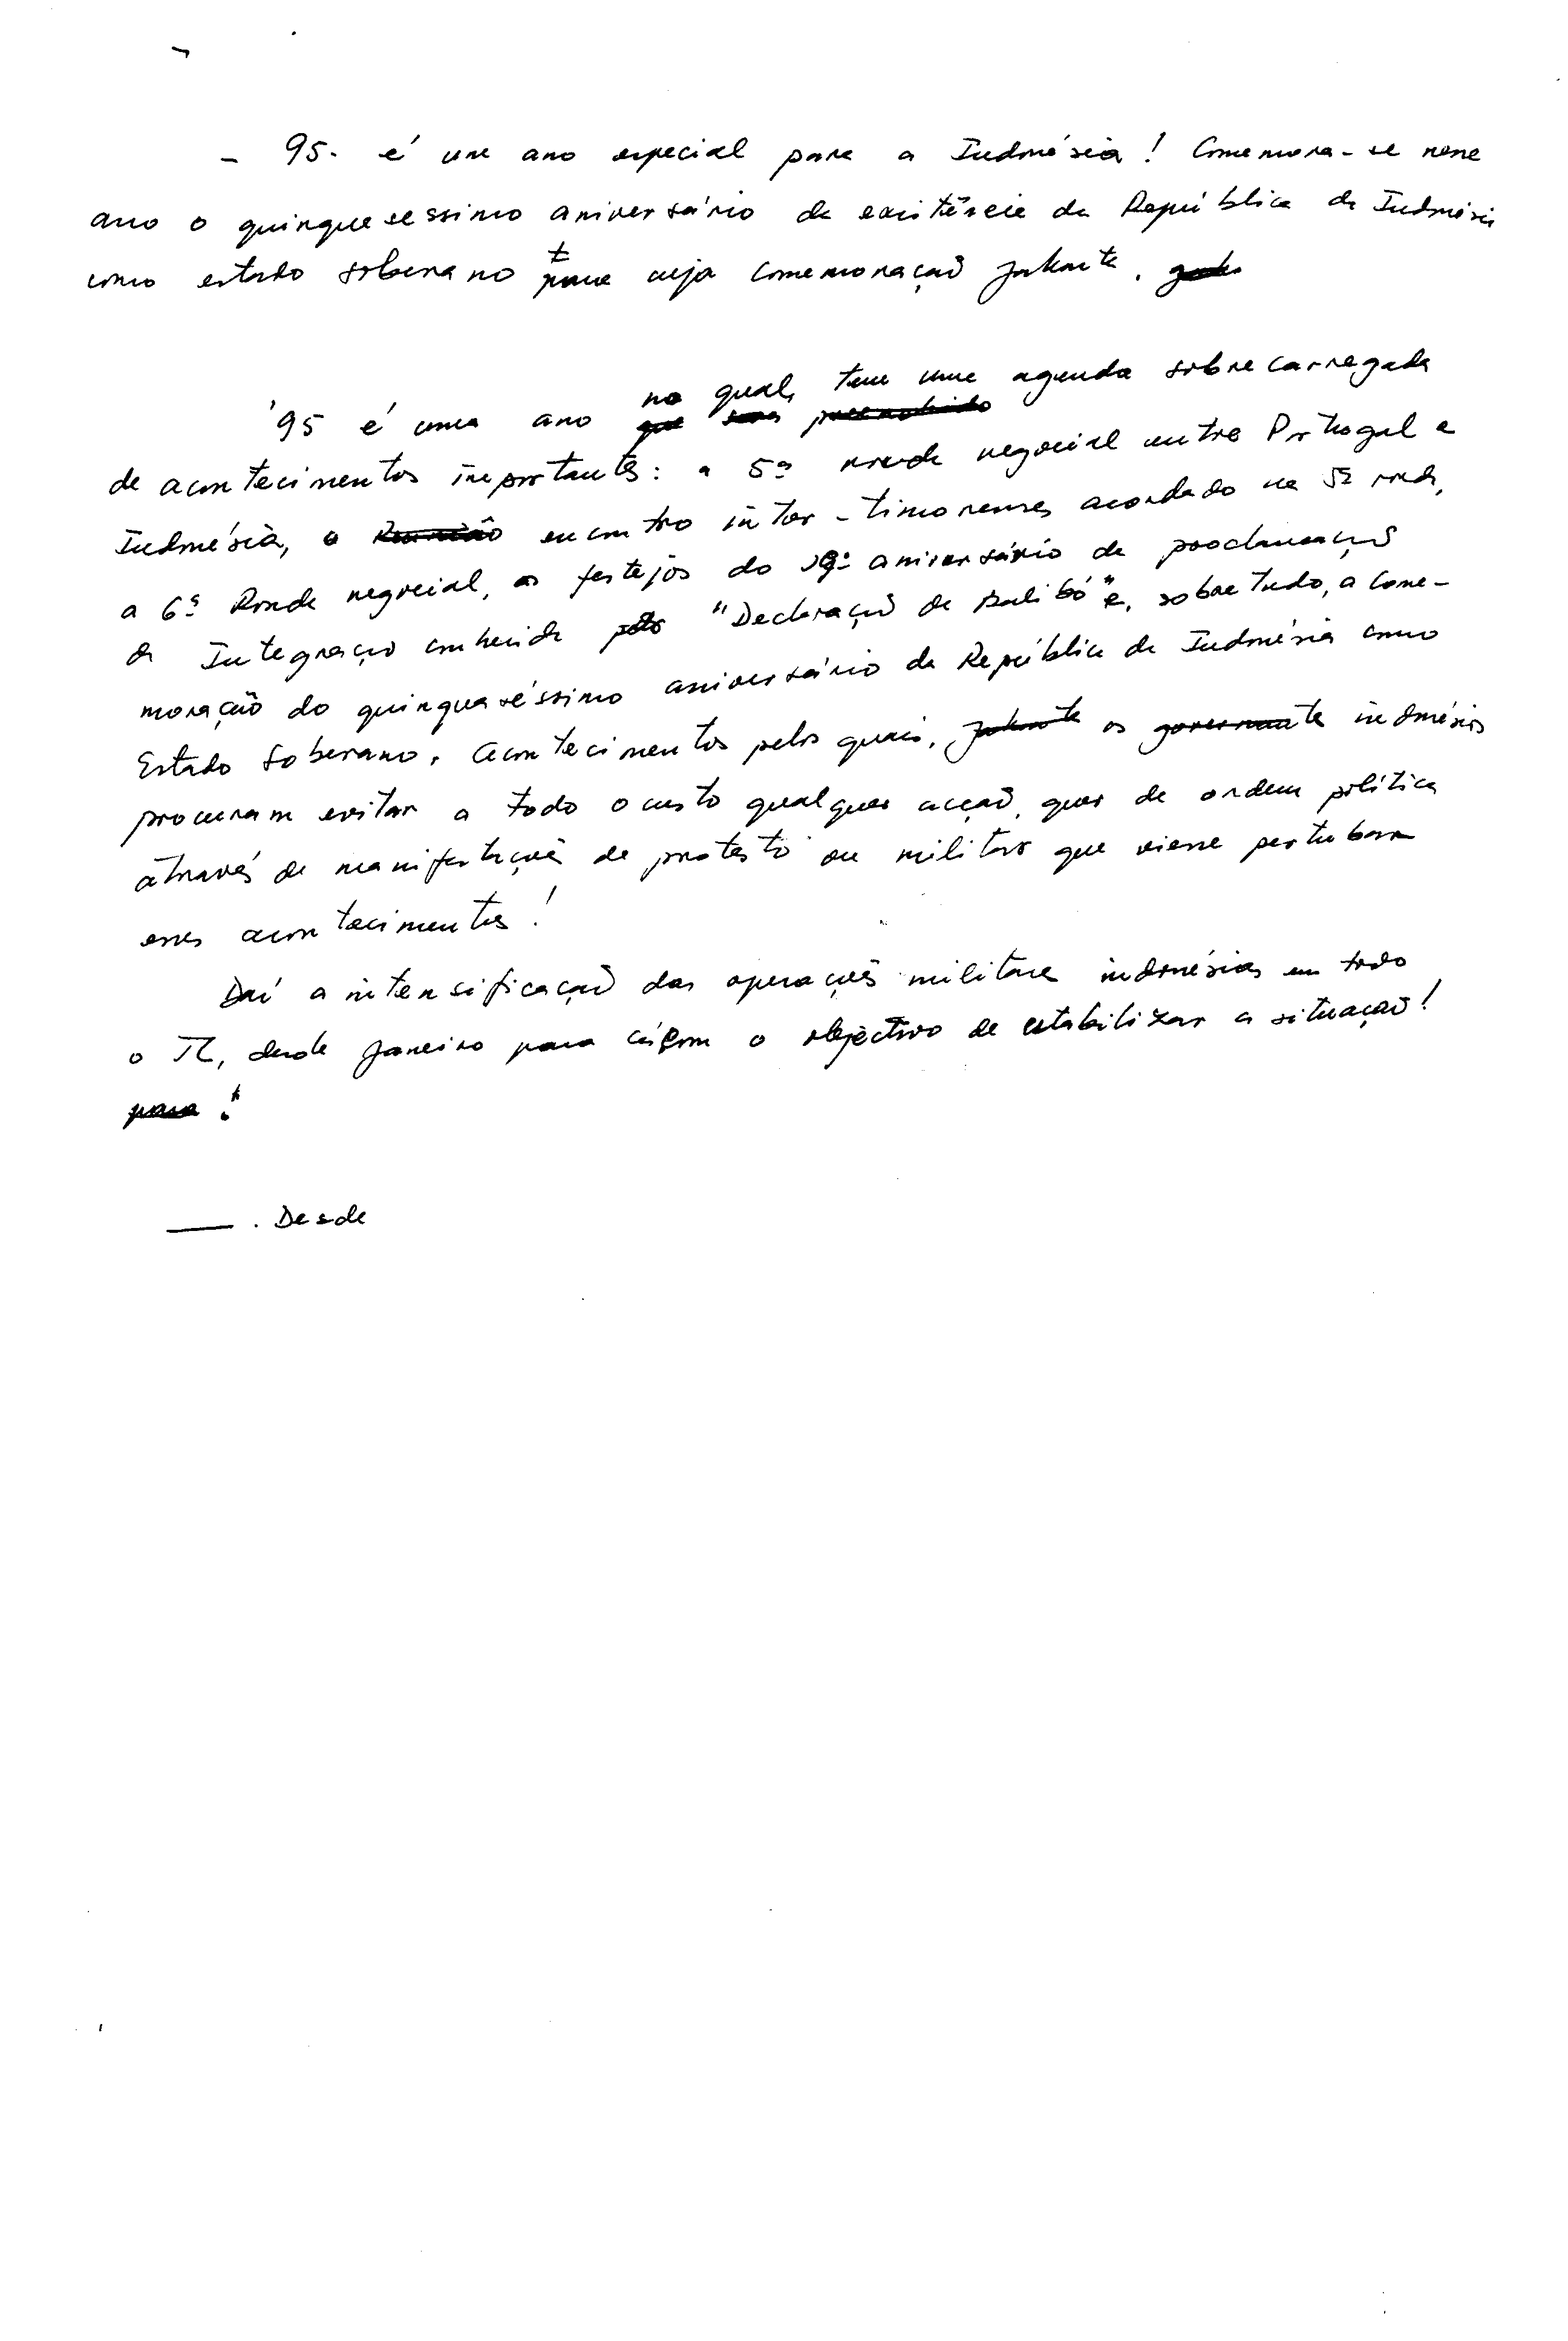 - 95. é um ano especial para a Indonésia! Comemora-se nesse
ano o quinquesessimo aniversário da existência da República da Indonésia
como estado soberano para cuja comemoração Jakarta.
no qual, tem uma agenda sobrecarregada
'95 é um ano que será preenchido
de acontecimentos importantes: a 5ª ronda negocial entre Portugal e
Indonésia, o Reunião encontro inter-timorenses acordado na 5ª ronda,
a 6ª Ronda negocial, os festejos do 19º aniversário da proclamação
da Integração conhecida pela "Declaração de Balibó" e, sobretudo, a come-
moração do quinquaséssimo aniversário da República da Indonésia como
Estado Soberano. Acontecimentos pelos quais, Jakarta os governantes indonésios
procuram evitar a todo o custo qualquer acção, quer de ordem política
através de manifestações de protesto ou militar que viesse pertubar
esses acontecimentos!
Daí a intensificação das operações militares indonésias em todo
o TL, desde Janeiro para cá, com o objectivo de estabilizar a situação!
para !
. Desde